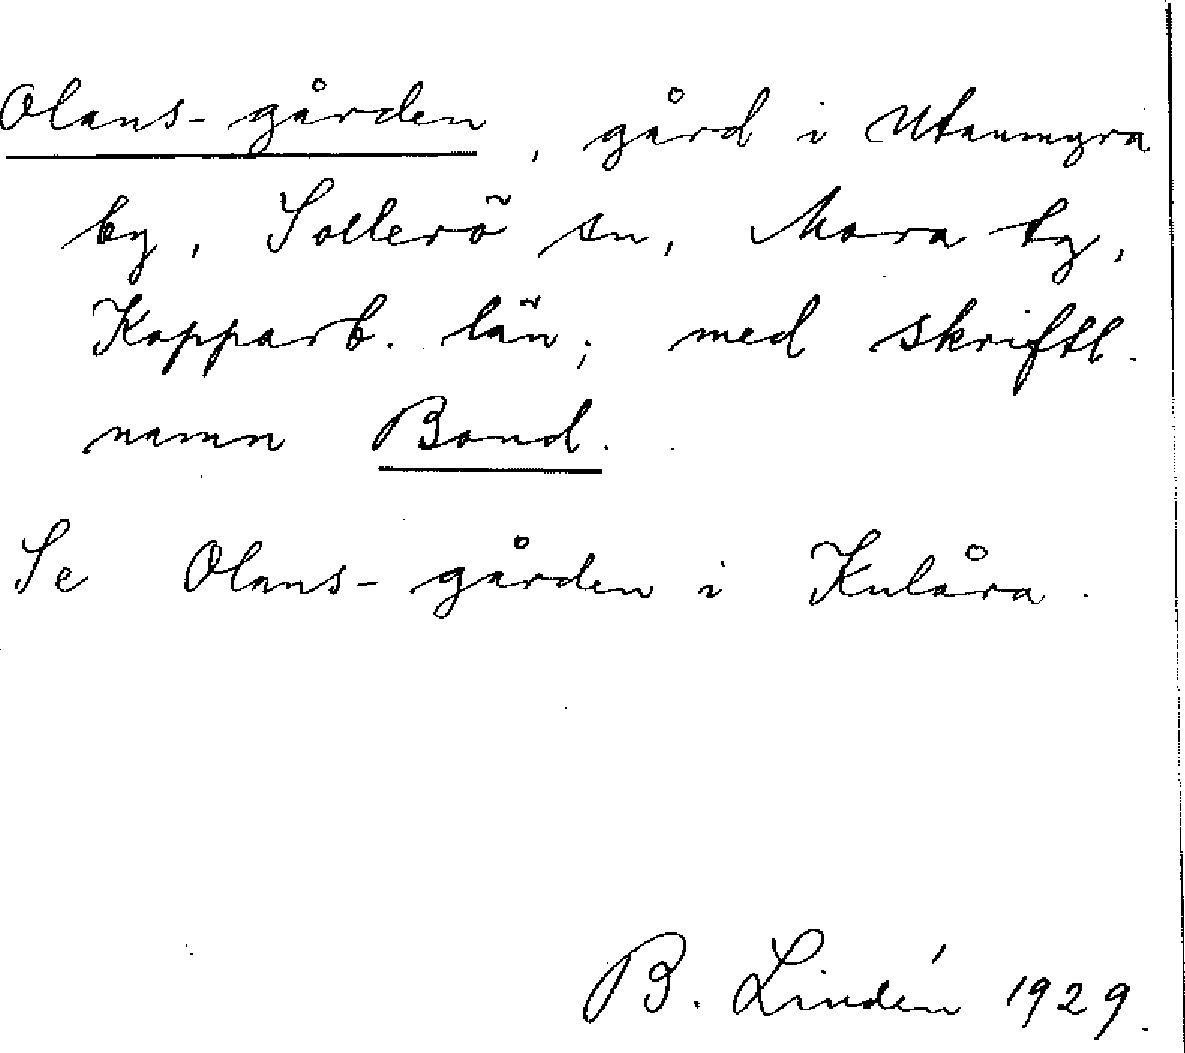 Olans-gården, gård i Utanmyra
by, Sollerö sn, Mora tg,
Kopparb. län; med skriftl.
namn Bond.
Se Olans-gården i Kulåra.
B. Lindén 1929.